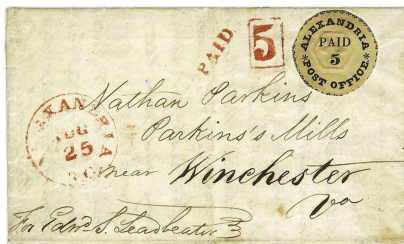 PAID
5
ALEXANDRIA
PAID
5
* POST OFFICE *
ALEXANDRIA
AUG
25
D.C.
Nathan Parkins
Parkins's Mills
near Winchester
Va
For Edwd. S. Leadbeater